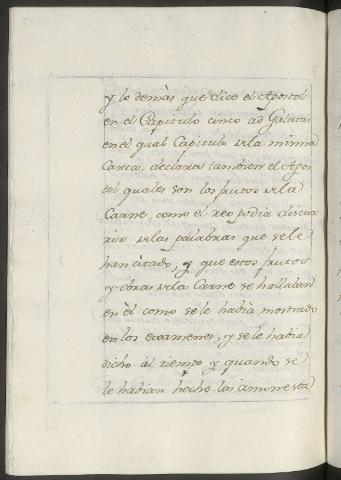 y lo demàs que dice el Apostol
en el Capitulo cinco ad Galatas
en el qual Capitulo dela misma
Carta, declara tambien el Apos
tol quales son los frutos dela
Carne, como el reo podia discur
rir delas palabras que sele
han citado, y que estos frutos
y obras dela Carne se hallaban
en èl como sele habia mostrado
en los examenes, y sele habia
dicho al tiempo y quando se
le habian hecho las amonesta